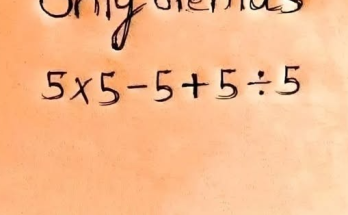 Only
5x5-5+5÷5